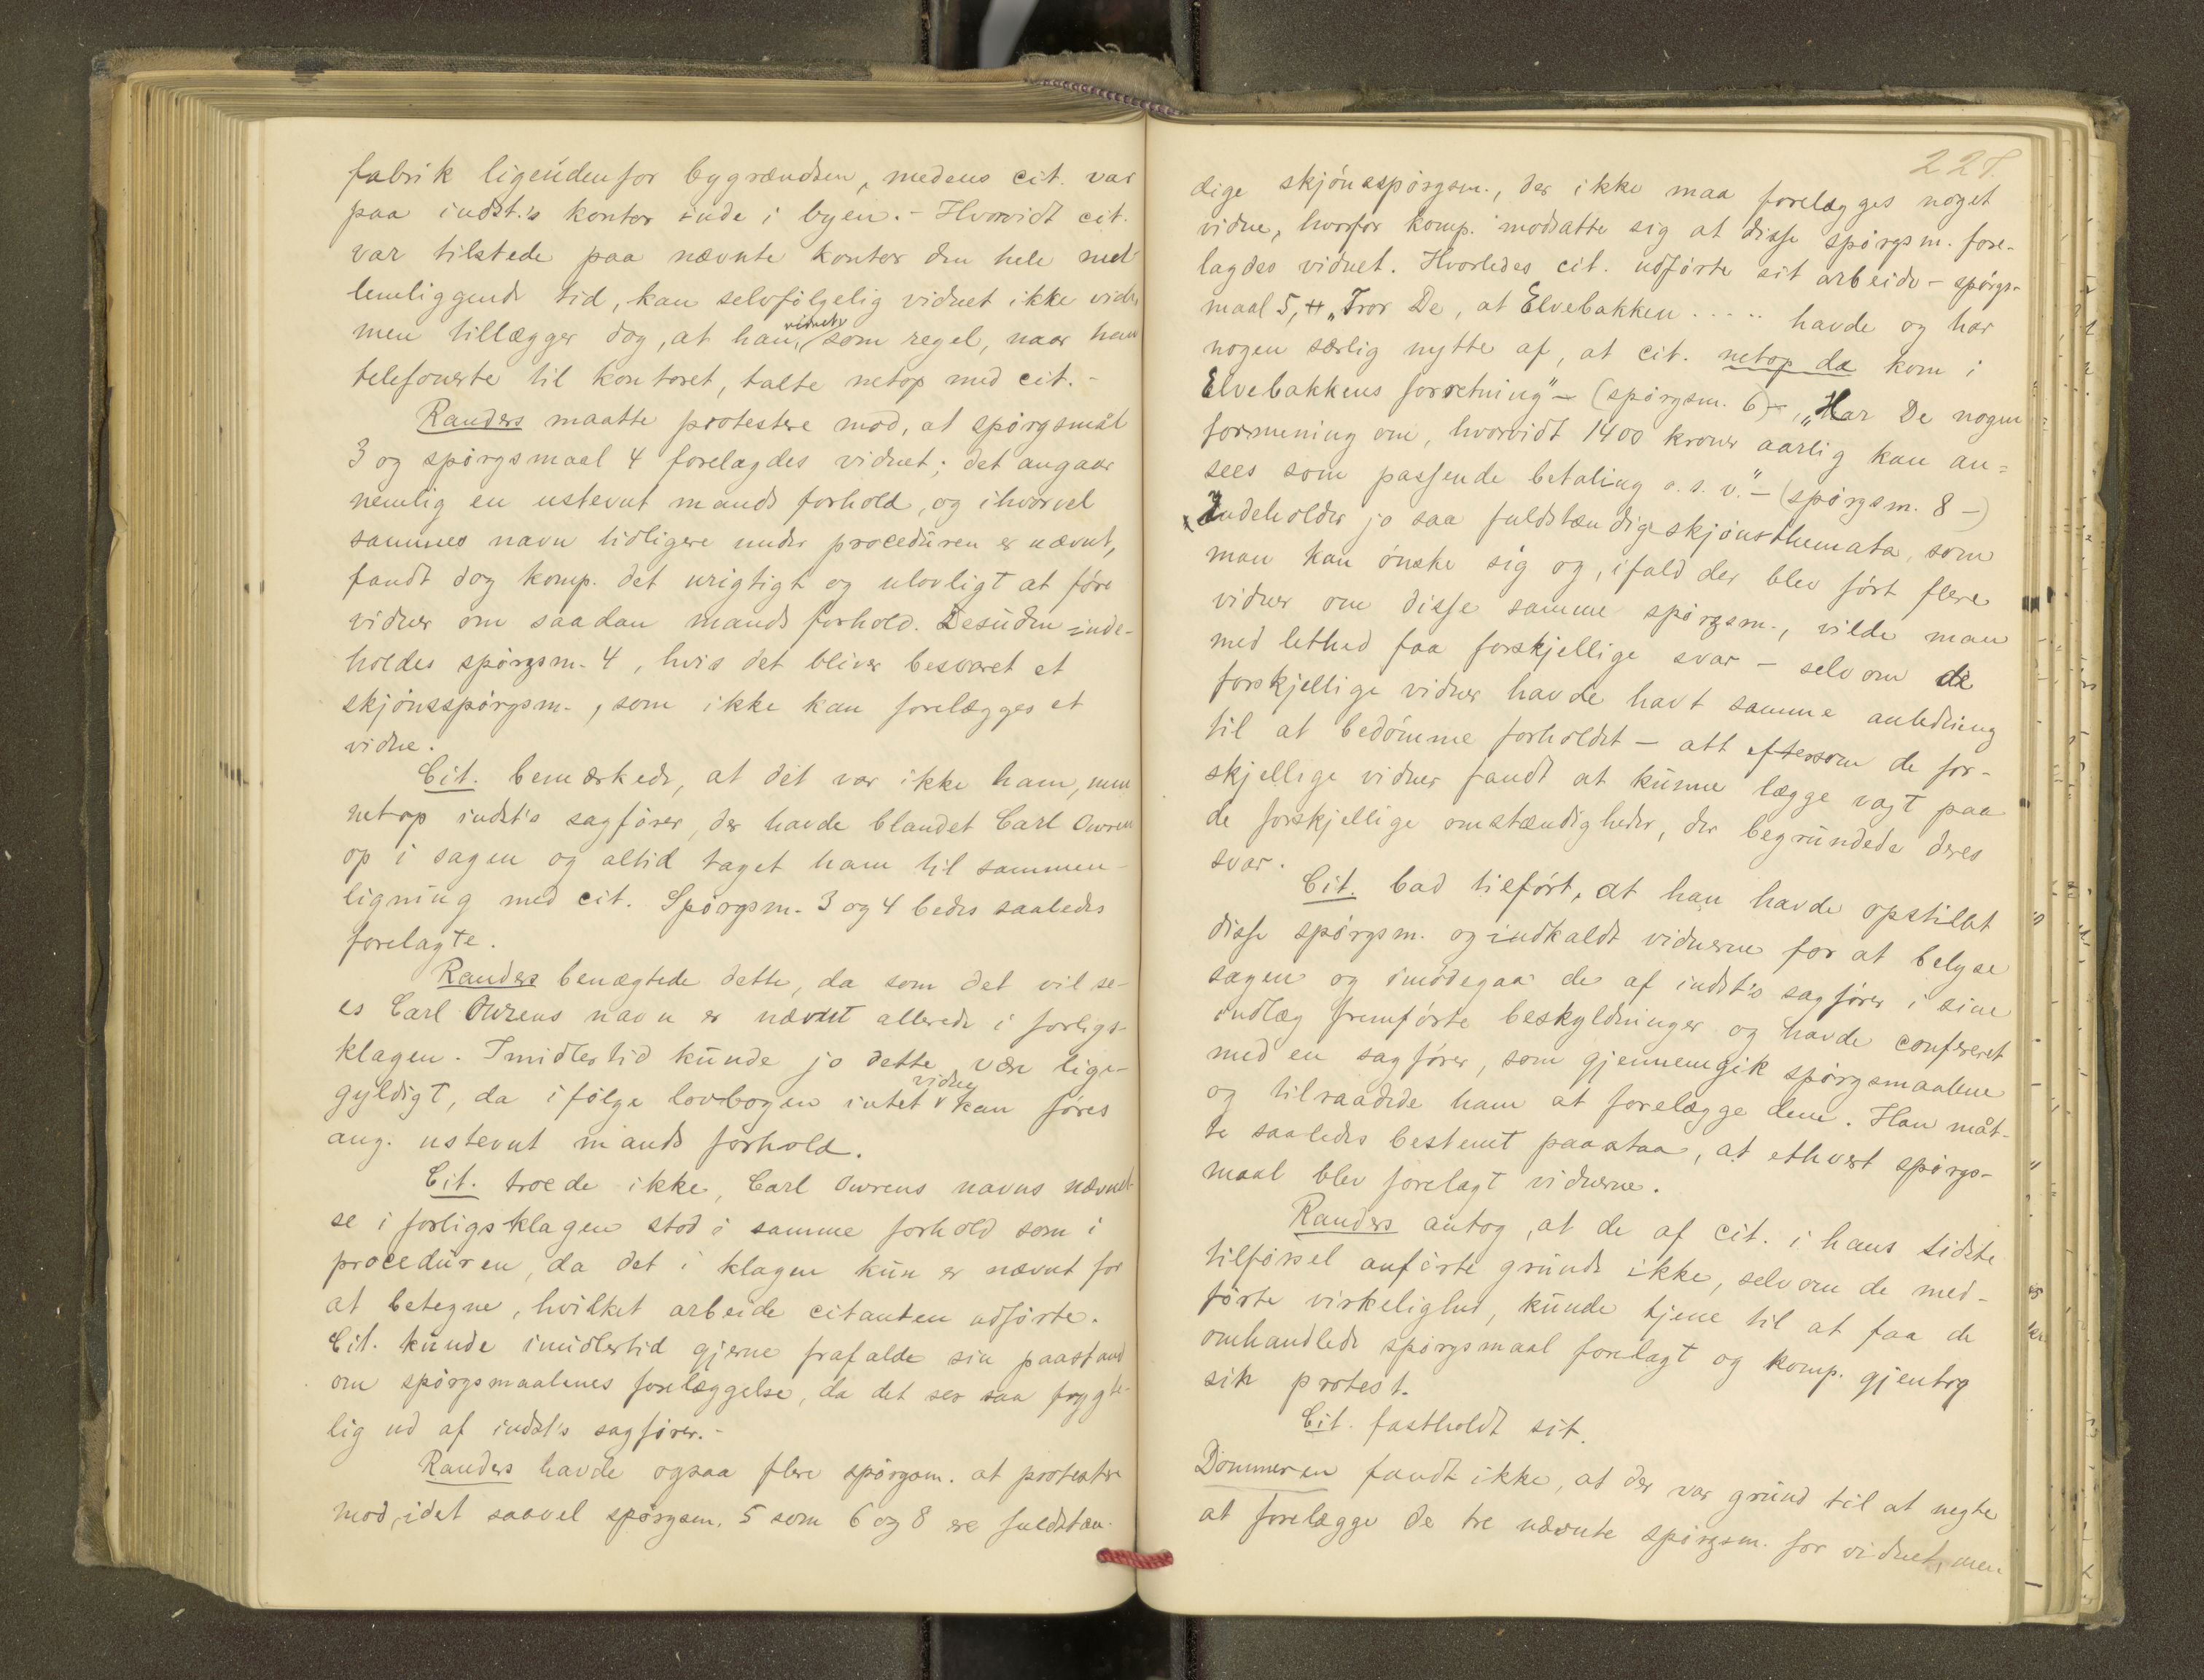 fabrik ligeúdenfor bygrændsen, medens cit. var
paa indst.'s kontor inde i byen. - Hvorvidt cit.
var tilstede paa nævnte kontor den hele mel
lemliggende tid, kan selvfølgelig vidnet ikke vide,
men tillægger dog, at han, vidnet, som regel, naar han
telefonerte til kontoret, talte netop med cit. -
Randers maatte protestere mod, at spørgsmål
3 og spørgsmaal 4 forelagdes vidnet; det angaar
nemlig en ustevnt mands forhold, og ihvorvel
sammes navn tidligere under proceduren er nævnt,
fandt dog komp. det urigtigt og ulovligt at føre
vidner om saadan mands forhold. Desuden inde-
holdes spørgsm. 4, hvis det bliver besvaret et
skjønsspørgsm., som ikke kan forelægges et
vidne.
Cit. bemærkede, at det var ikke ham, men
netop indst's sagfører, der havde blandet Carl Owren
op i sagen og altid taget ham til sammen-
ligning med cit. Spørgsm. 3 og 4 bedes saaledes
forelagte.
Randers benægtede dette, da som det vil se-
es Carl Owrens navn er nævnt allerede i forligs-
klagen. Imidlertid kunde jo dette være lige-
gyldigt, da ifølge lovbogen intet vidne kan føres
ang. ustevnt mands forhold.
Cit. troede ikke, Carl Owrens navns nævnel-
se i forligsklagen stod i samme forhold som i
proceduren, da det i klagen kun er nævnt for
at betegne, hvilket arbeide citanten udførte.
Cit. kunde imidlertid gjerne frafalde sin paastand
om spørgsmaalenes forelæggelse, da det ser saa frygte-
lig ud af indst's sagfører. -
Randers havde ogsaa flere spørgsm. at protestere
mod, idet saavel spørgsm. 5 som 6 og 8 ere fuldstæn-
227.
dige skjønsspørgsm., der ikke maa forelægges noget
vidne, hvorfor komp. modsatte sig at disse spørgsm. fore-
lagdes vidnet. Hvorledes cit. udførte sit arbeide - spørgs-
maal 5, „Tror De, at Elvebakken ..... havde og har
nogen særlig nytte af, at cit. netop da kom i
Elvebakkens forretning" - (spørgsm. 6) - „Har De nogen
formening om, hvorvidt 1400 kroner aarlig kan an=
sees som passende betaling o. s. v." - (spørgsm. 8 -)
Indeholder jo saa fuldstændige skjønsthemata, som
man kan ønske sig og, ifald der blev ført flere
vidner om disse samme spørgsm., vilde man
med lethed faa forskjellige svar - selv om de
forskjellige vidner havde havt samme anledning
til at bedømme forholdet - alt eftersom de for-
skjellige vidner fandt at kunne lægge vægt paa
de forskjellige omstændigheder, der begrundede deres
svar.
Cit. bad tilført, at han havde opstillet
disse spørgsm. og indkaldt vidnerne for at belyse
sagen og imødegaa de af indst's sagfører i sine
indlæg fremførte beskyldninger og havde confereret
med en sagfører, som gjennemgik spørgsmaalene
og tilraadede ham at forelægge dem. Han måt-
te saaledes bestemt paastaa, at ethvert spørgs-
maal blev forelagt vidnerne.
Randers antog, at de af cit. i hans sidste
tilførsel anførte grunde ikke, selv om de med-
førte virkelighed, kunde tjene til at faa de
omhandlede spørgsmaal forelagt og komp. gjentog
sin protest.
Cit. fastholdt sit.
Dommeren fandt ikke, at der var grund til at negte
at forelægge de tre nævnte spørgsm. for vidnet, men